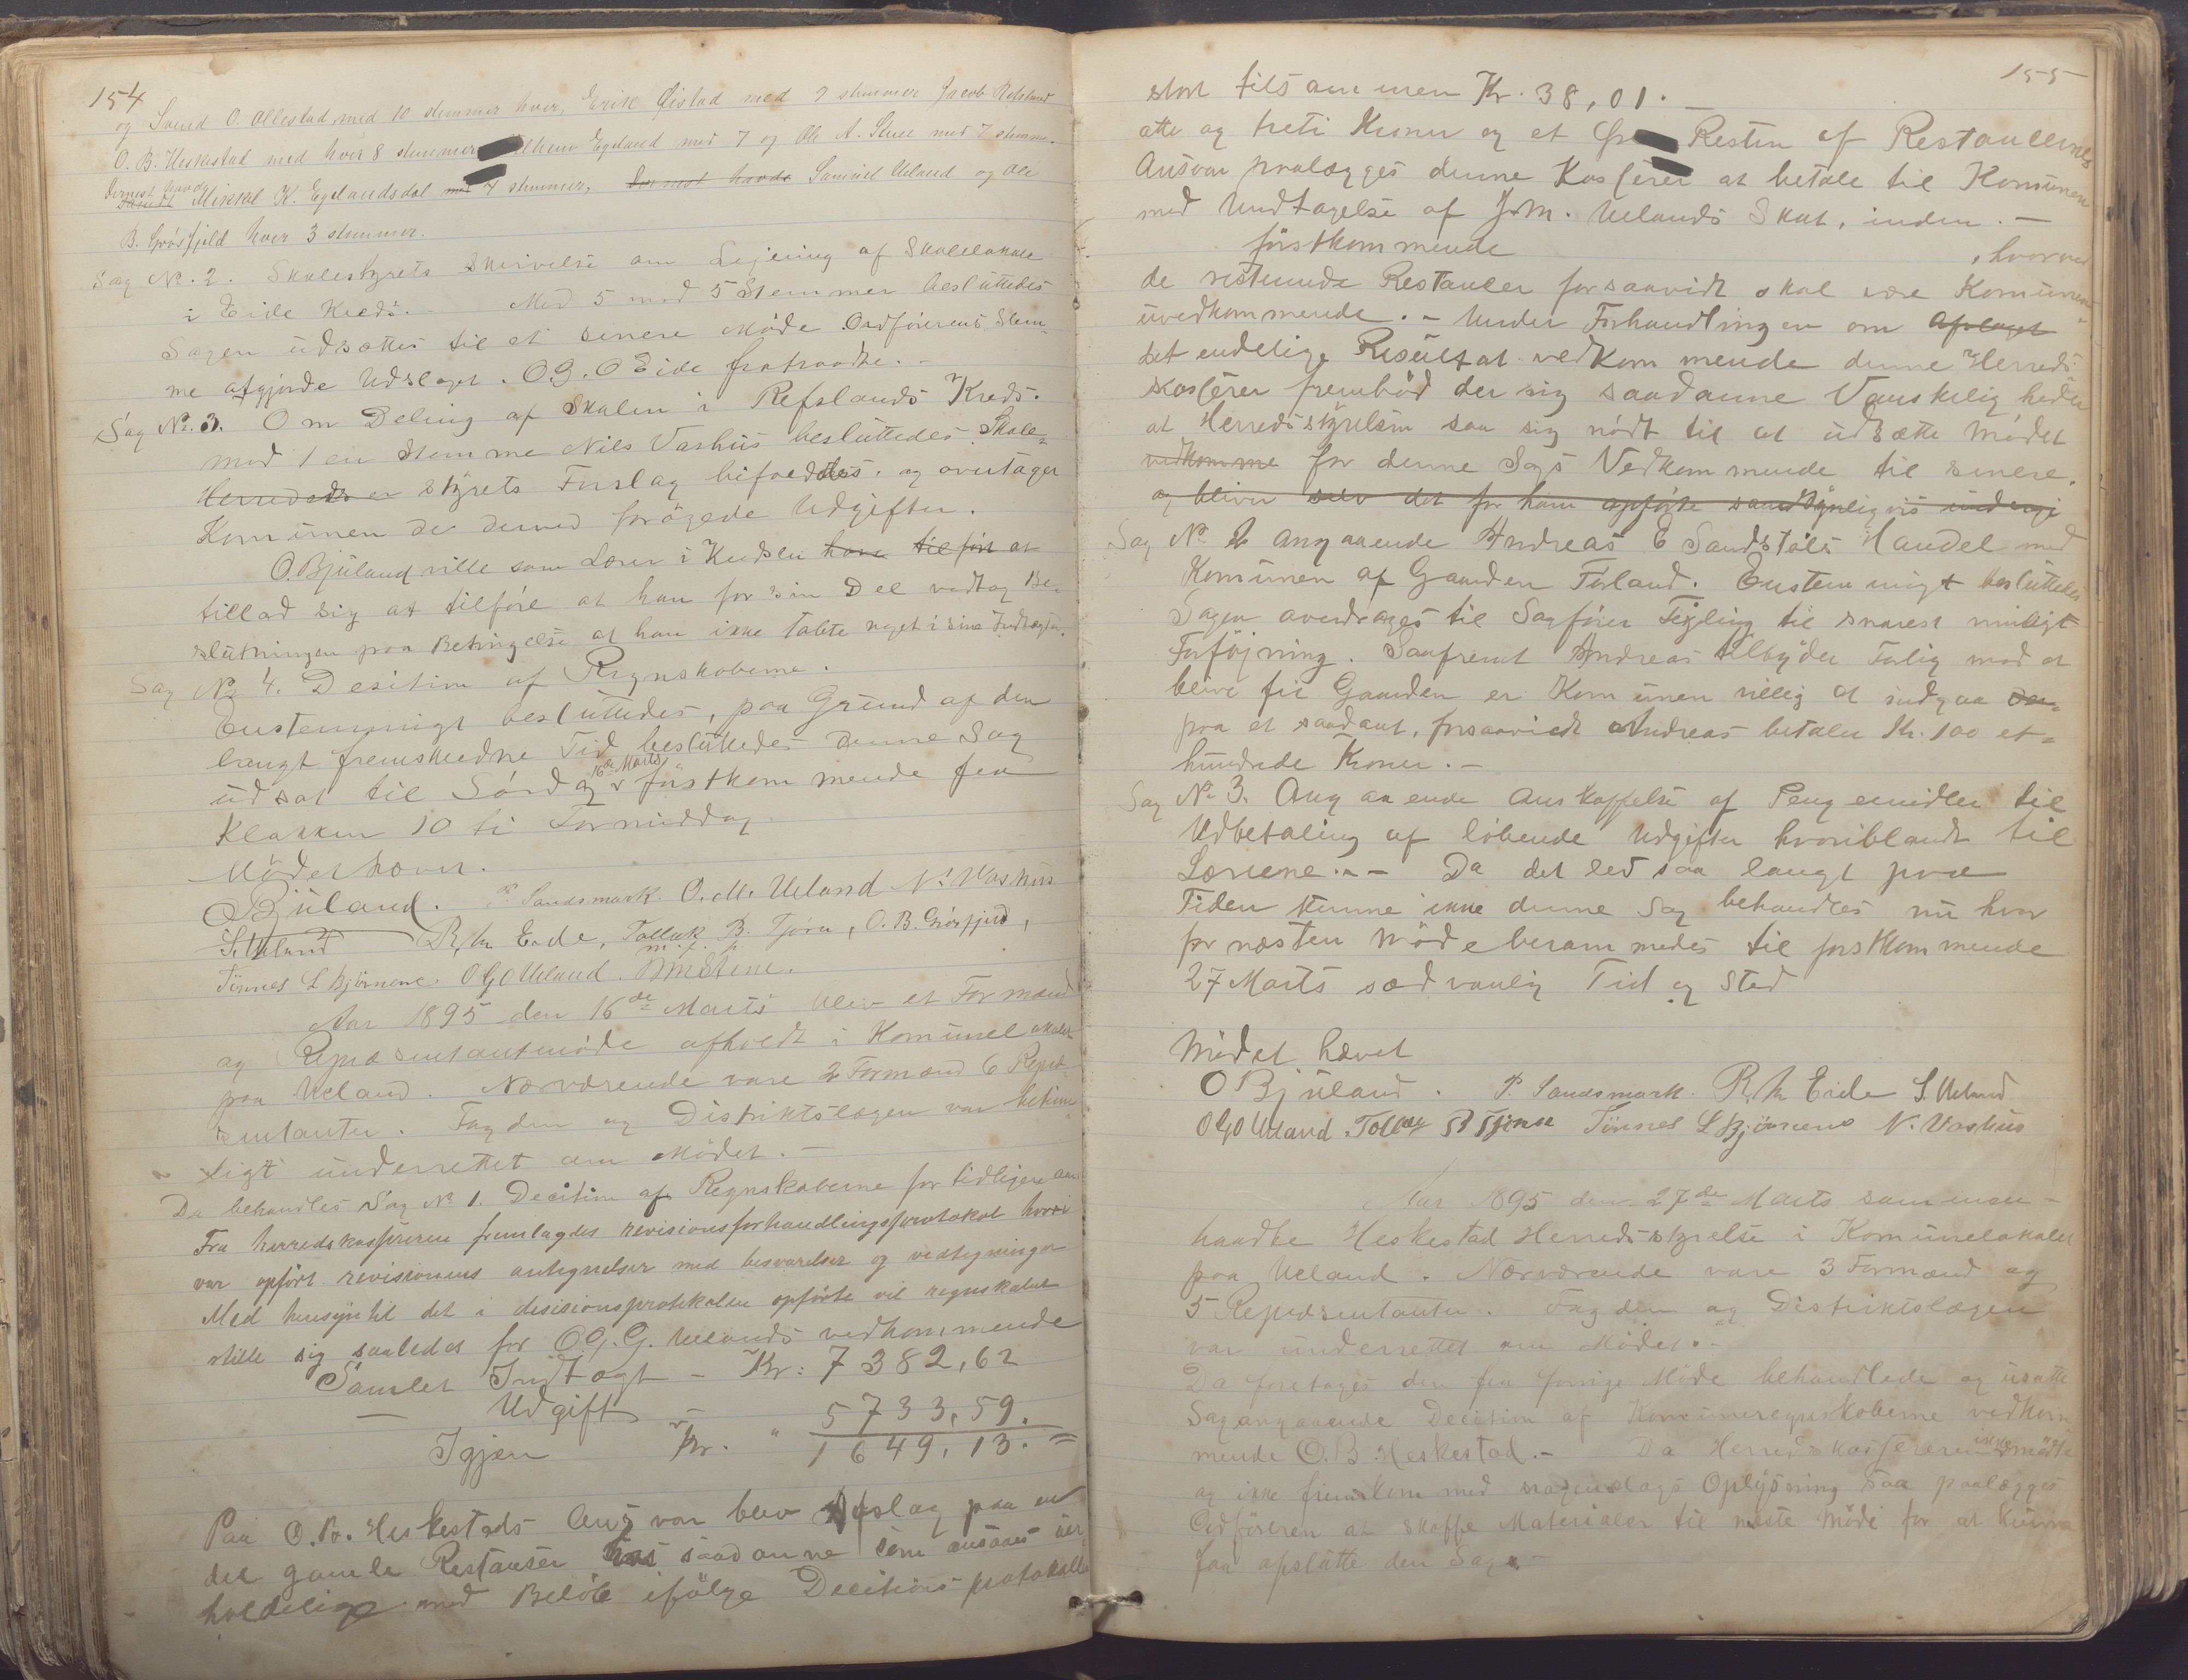 154
og Svend O. Ollestad med 10 stemmer hver, Erik Eistad med 9 stemmer Jacob Refsland
O. B. Heskestad med hver 8 stemmer Egeland med 7 og Ole A. Stene med 7 stemmer.
dernest havde Mikkel K. Egelandsdal med 4 stemmer, dernest havde Samuel Ueland og Ole
B. Grøsfjeld hver 3 stemmer.
Sag No. 2. Skolestyrets Skrivelse om Lejening af Skolelokale
i Eide Kreds. Med 5 mod 5 Stemmer besluttedes
Sagen udsættes til et senere Møde. Ordførerens Stem-
me afgjorde Udslaget. O.G.O Eide fratraadte. -
Sag No. 3. Om Deling af Skolen i Refslands Kreds.
mod 1 en Stemme Nils Vashus besluttedes. Skole-
Herredets er styrets Forslag bifoldtes. og overtager
Komunen de derved forøgede Udgifter.
O. Bjuland ville som Lærer i Kredsen have tilført at
tillod sig at tilføre at han for sin Del vedtog Be-
slutningen paa Betingelse at han ikke tabte noget i sine Indtægter.
Sag No 4. Desition af Regnskaberne.
Enstemmigt besluttedes, paa Grund af den
langt fremskredne Tid besluttedes denne Sag
udsat til Lørdag 16de Marts førstkommende fra
Klokken 10 ti Formiddag.
Mødet hævet.
O Bjuland. P. Sandsmark. O. M. Ueland N. Vashus
S. Ueland R. M Eide, Tollak B. Tjørn, O. B. Grøsfjeld,
m. f. p.
Tønnes L Bjørnene. OGO Ueland.
Aar 1895 den 16de Marts blev et Formænd
og Repræsentantmøde afholdt i Komunelokalet
paa Ueland. Nærværende vare 2 Formænd 6 Repræ-
sentanter. Fogden og Distriktslægen var betim-
ligt underrettet om Mødet. -
Da behandles Sag No 1. Decition af Regnskaberne for tidligere aar
Fra herredskassereren fremlagdes revisionsforhandlingsprotokol hvori
var opført revisionens antegnelser med besvarelser og vedtegninger
Med hensyn til det i desisionsprotokolen opførte vil regnskabet
stille sig saaledes for O.G.G. Uelands vedkommende
Samlet Indtægt - Kr: 7382,62
— Udgift - " 5733,59.
Igjen Kr. " 1649,13. =
Paa O. B. Heskestads Ansvar blev Afslag paa en
del gamle Restanser hos saadanne som ansaaes uer-
holdelige med Beløb ifølge Decitionsprotokollen
155
stort tilsammen Kr. 38,01. -
otte og treti Kroner og et Øre Resten af Restancernes
Ansvar paalægges denne Kasserer at betale til Komunen
med Undtagelse af J. M. Uelands Skat, inden. -
førstkommende , hvorved
de resterende Restancer forsaavidt skal være Komunen
uvedkommende. - Under Forhandlingen om Afslaget
det endelige Resultat vedkommende denne Herreds-
kasserer frembød der sig saadanne Vanskeligheder
at Herredsstyrelsen saa sig nødt til at udsætte Mødet
vedkomme for denne Sags Vedkommende til senere.
og bliver selv det for ham opførte sandsynligvis
Sag No 2 angaaende Andreas E Sandstøls Handel med
Komunen af GaardenFørland. Enstemmigt besluttedes
Sagen overdrages til Sagfører Tejgling til snarest muligt
Forføjning. Saafremt Andreas tilbyder Forlig mod at
blive fri Gaarden er Komunen villig at indgaa
paa et saadant, forsaavidt Andreas betaler Kr. 100 et-
hundrede Kroner. -
Sag No 3. Angaaende Anskaffelse af Pengemidler til
Udbetaling af løbende Udgifter hvoriblandt til
Lærerne. - - Da det led saa langt paa
Tiden kunne ikke denne Sag behandles nu hvor
for næsten Møde berammedes til førstkommende
27 Marts sædvanlig Tid og Sted
Mødet hævet
O Bjuland. P. Sandsmark. R. M Eide S. Ueland
OGO Ueland. Tollak B Tjørn Tønnes L Bjørnene N. Vashus
Aar 1895 den 27de Marts sammen-
traadte Heskestad Herredsstyrelse i Komunelokalet
paa Ueland. Nærværende vare 3 Formænd og
5 Repræsentanter. Fogden og Distriktslægen
var underrettet om Mødet. -
Da foretages den fra forrige Møde behandlede og usatte
Sag angaaende Decition af Komuneregnskaberne vedkom
mende O. B Heskestad. - Da Herredskassereren ikke mødte
og ikke fremkom med nogenslags Oplysning saa paalægges
Ordføreren at skaffe Materialer til næste Møde for at kunne
faa afslutte den Sag. -